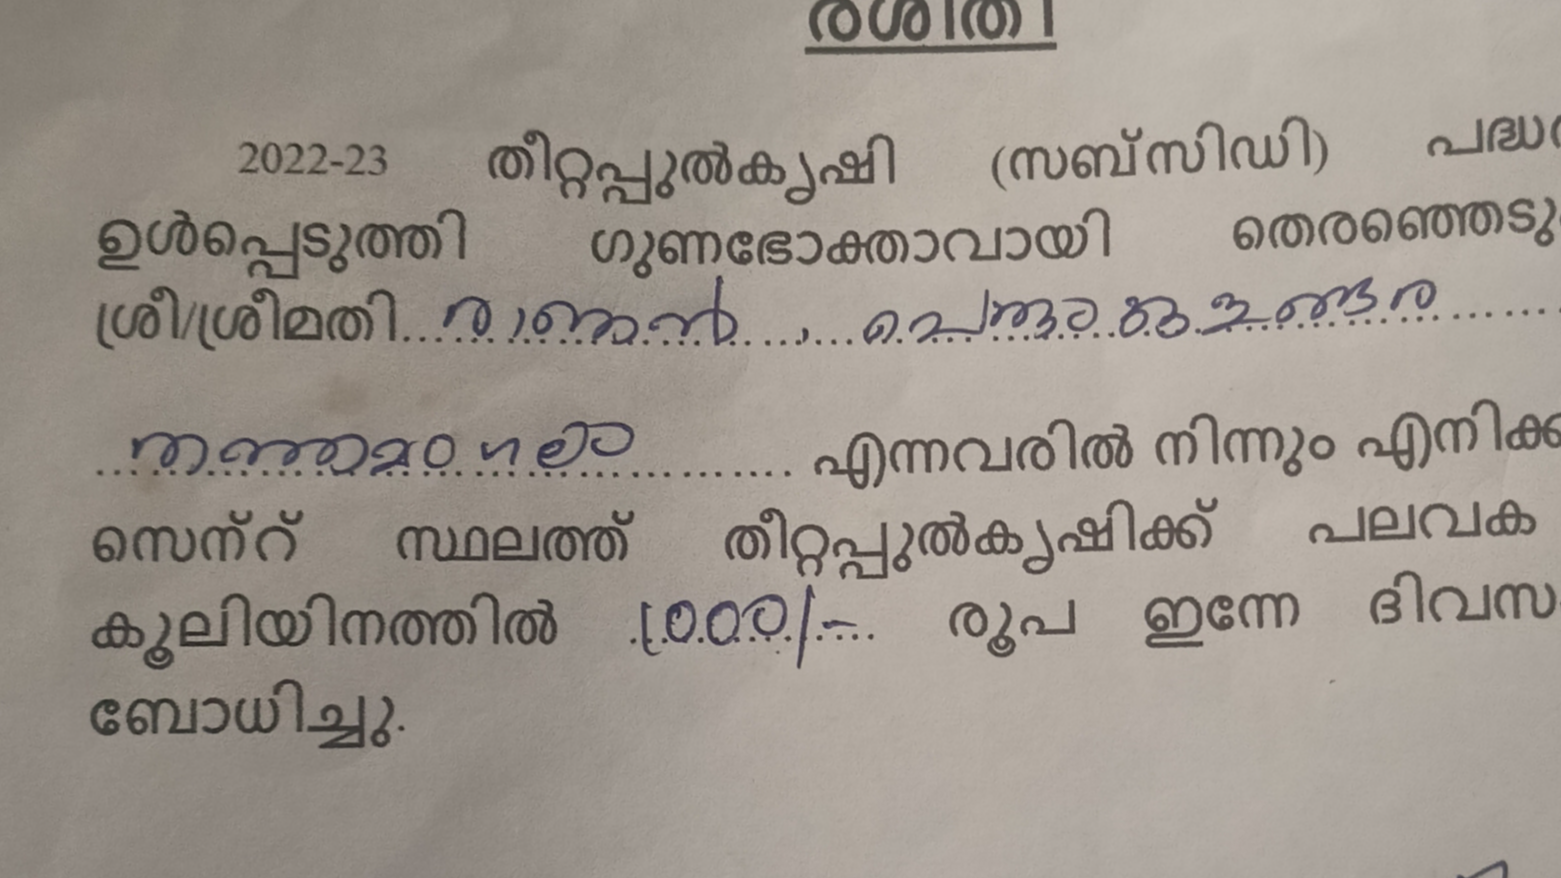 രശീതി
2022-23 തീറ്റപ്പുൽകൃഷി (സബ്സിഡി)
ഉൾപ്പെടുത്തി ഗുണഭോക്താവായി തെരഞ്ഞെടു
ശ്രീ/ശ്രീമതി
എന്നവരിൽ നിന്നും എനിക്ക
സെന്റ് സ്ഥലത്ത് തീറ്റപ്പുൽകൃഷിക്ക് പലവക
കൂലിയിനത്തിൽ 1000/- രൂപ ഇന്നേ ദിവസ
ബോധിച്ചു.